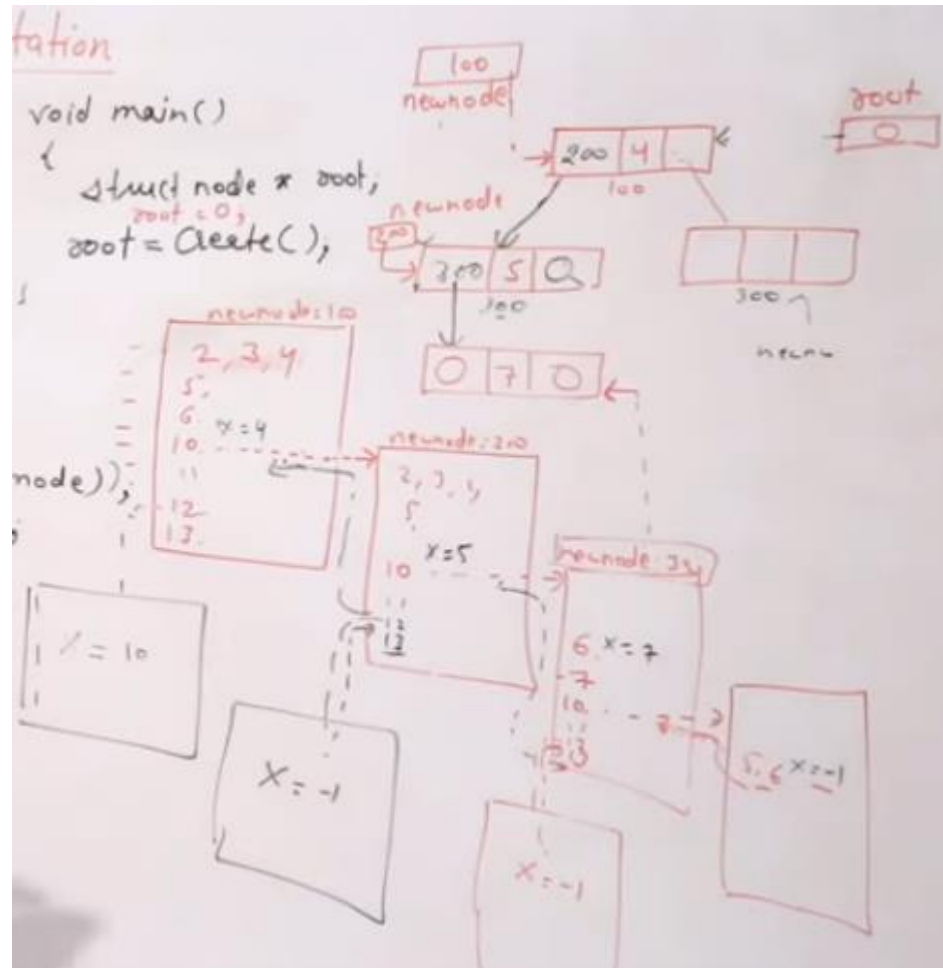 tation
void main()
{
struct node * root;
root = 0;
root = Create();
100
newnode
root
0
200 4
100
newnode
200
300 5 0
300
0 7 0
newnode:100
2, 3, 4
5,
6.
10. x=4
11
12
13.
node));
newnode:200
2, 3, 4
5,
10 x=5
11
12
13
newnode
6. x=7
7
10.
11
13
5, 6 x=-1
x=10
x=-1
x=-1